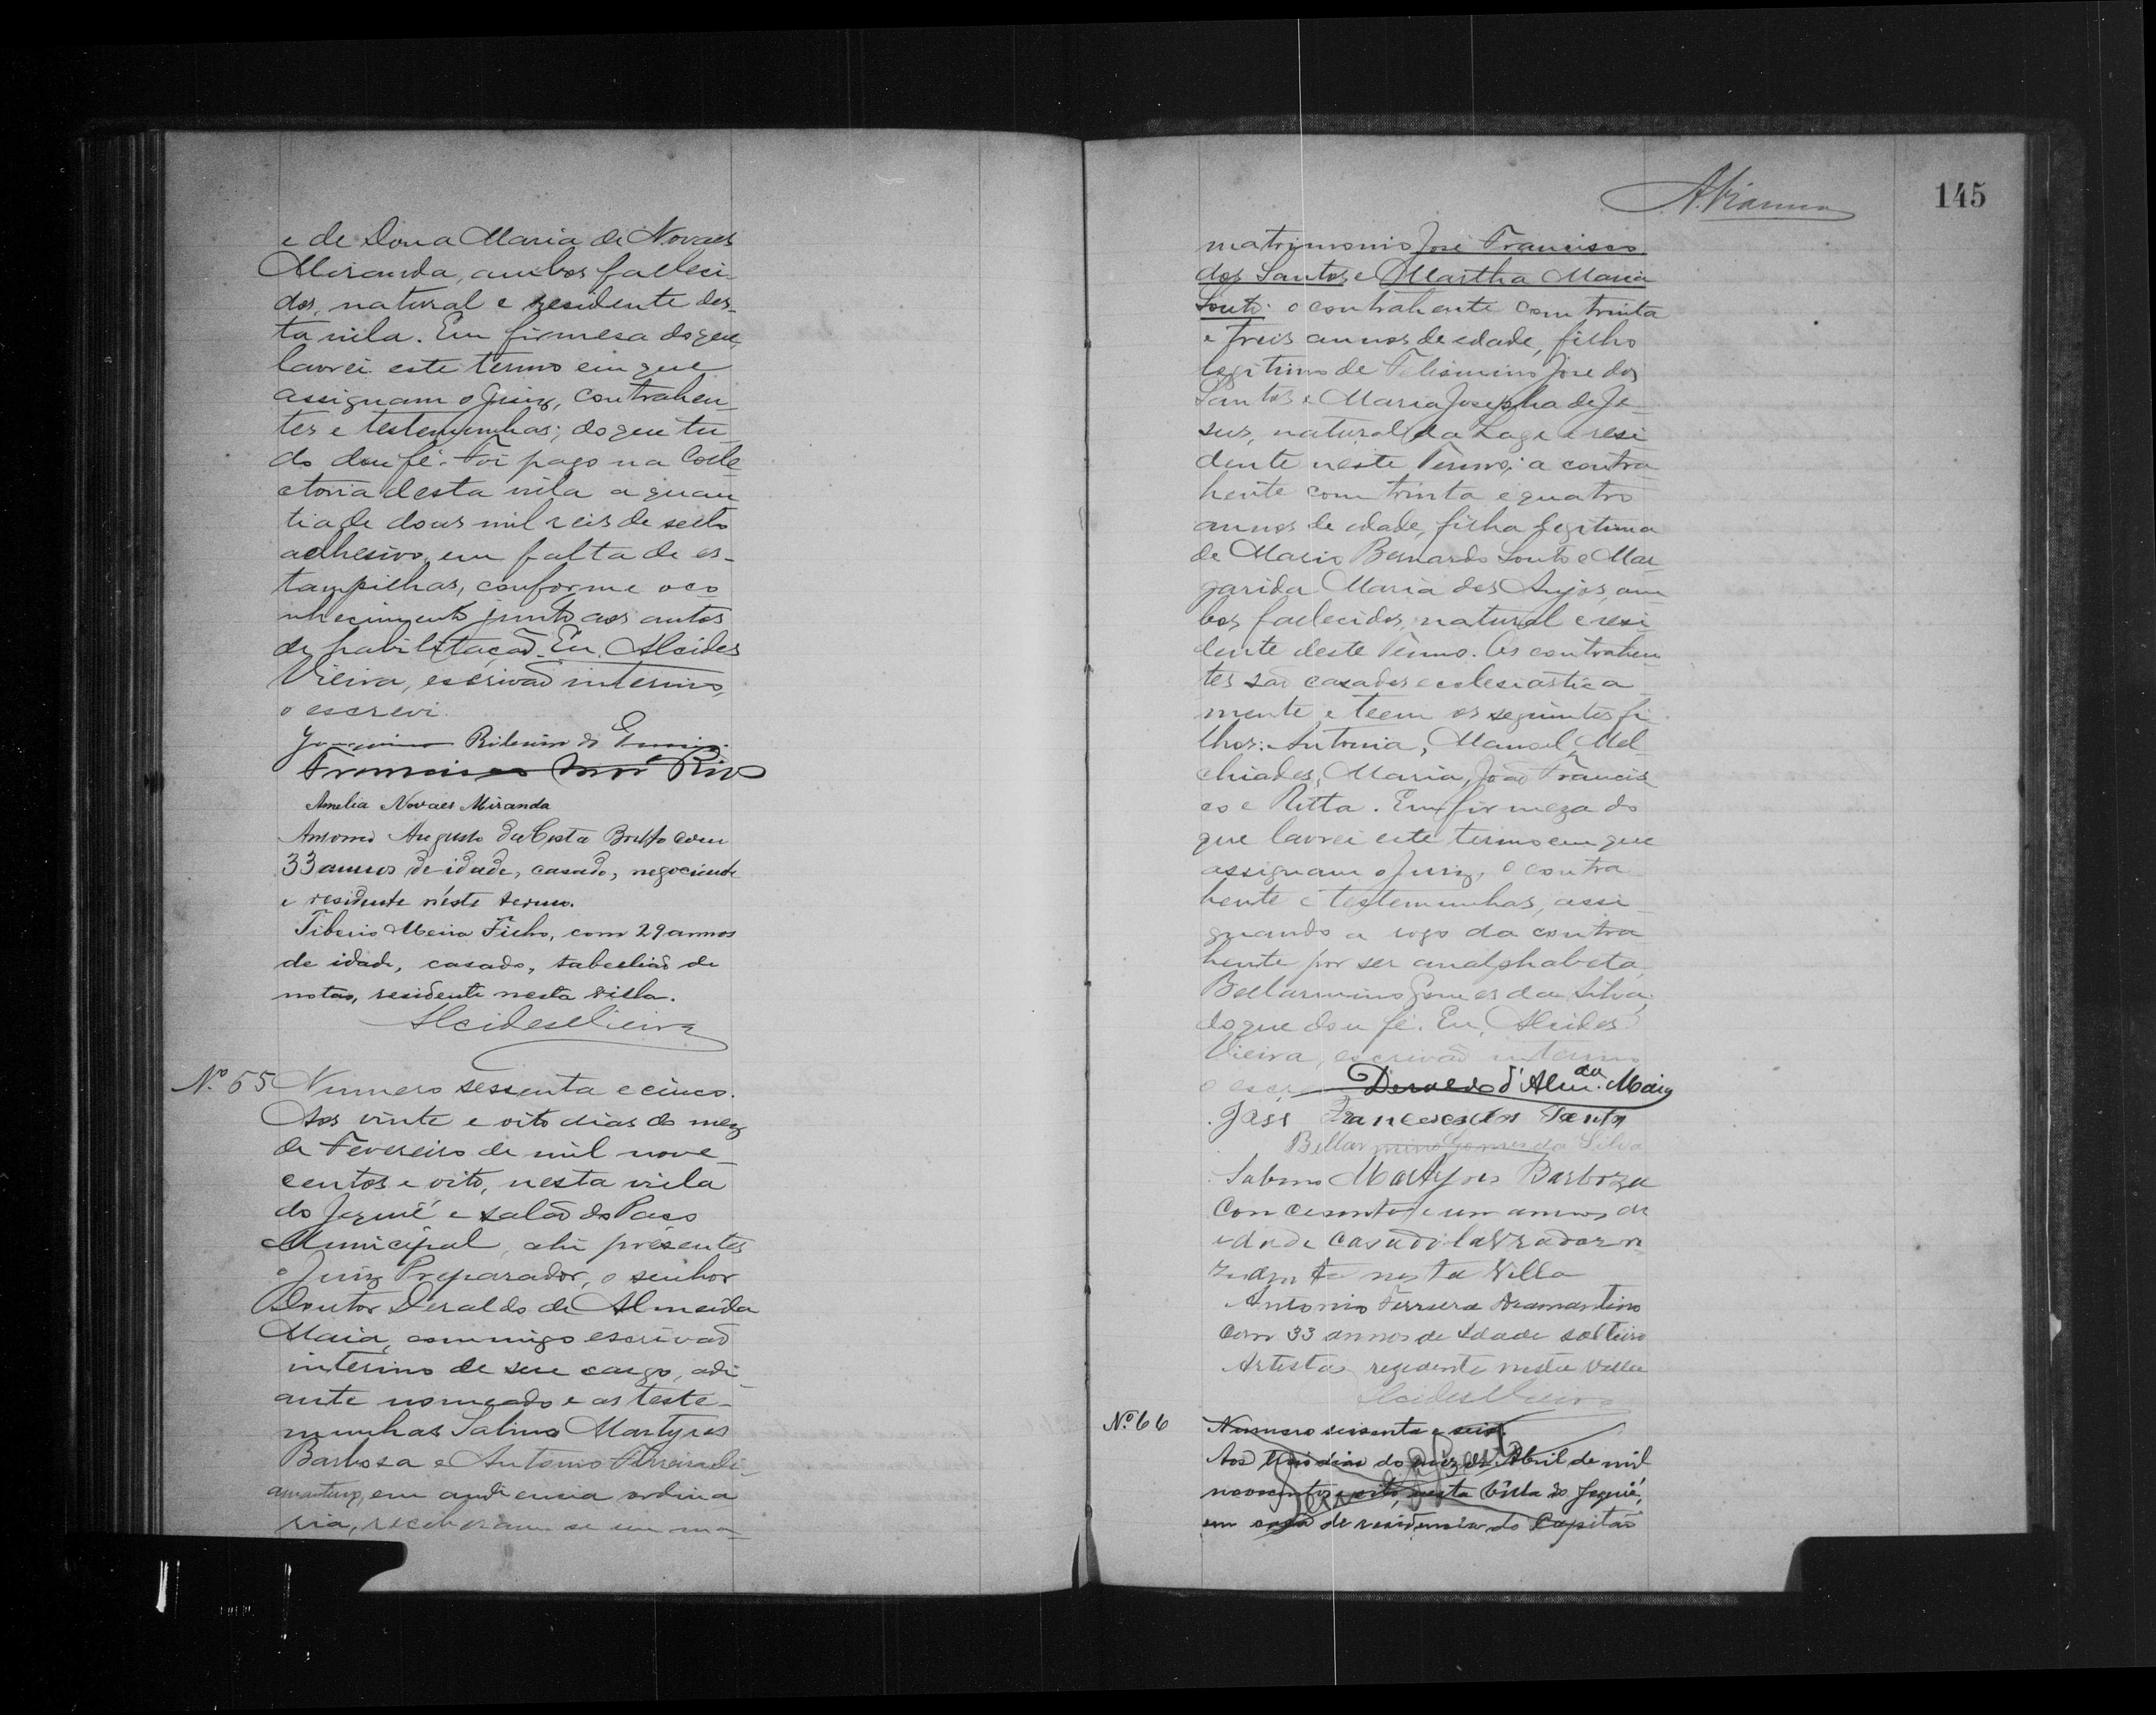 e de Dona Maria de Novaes
Miranda, ambos falleci-
dos, natural e residente des-
ta villa. Em firmesa do que,
lavrei este termo em que
assignam o Juiz, contrahen-
tes e testemunhas; do que tu-
do dou fé. Foi pago na Colle-
ctoria desta villa a quan
tia de dous mil reis de sello
adhesivo, em falta de es-
tampilhas, conforme o co
nhecimento junto aos autos
de habilitação. Eu, Alcides
Vieira, escrivão interino,
o escrevi.
Joaquim Ribeiro de
Francisco Rios
Amelia Novaes Miranda
Antonio Augusto da Costa Britto com
33 annos de idade, casado, negociante
e residente néste termo.
Tiberio Meira Filho, com 29 annos
de idade, casado, tabellião de
notas, residente nesta villa.
Alcides Vieira
Nº 65 Numero sessenta e cinco.
Aos vinte e oito dias do mez
de Fevereiro de mil nove-
centos e oito, nesta villa
do Jequié e salão do Paço
Municipal, ahi presentes
o Juiz Preparador, o senhor
Doutor Deraldo de Almeida
Maia, commigo escrivão
interino de seu cargo, adi-
ante nomeado e as teste-
munhas Sabino Martyres
Barbosa e Antonio Ferreira Di-
amantino, em audiencia ordina
ria, receberam-se em ma-
A. Vianna
145
matrimonio José Francisco
dos Santos e Martha Maria
Souto: o contrahente com trinta
e treis annos de edade, filho
legitimo de Felismino José dos
Santos e Maria Josepha de Je-
sus, natural da Lage e resi
dente neste Termo; a contra
hente com trinta e quatro
annos de edade, filha legitima
de Mario Bernardo Souto e Mar
garida Maria dos Anjos, am
bos fallecidos, natural e resi
dente deste Termo. Os contrahen
tes são casados ecclesiastica
mente e teem os seguintes fi
lhos: Antonia, Manoel, Mel
chiades, Maria, João Francis
co e Ritta. Em firmeza do
que lavrei este termo em que
assignam o Juiz, o contra
hente e testemunhas, assi
gnando a rogo da contra
hente por ser analphabeta,
Bellarmino Gomes da Silva;
do que dou fé. Eu, Alcides
Vieira, escrivão interino
o escrevi Deraldo d'Almda. Maia
José Francisco dos Santos
Bellarmino Gomes da Silva
Sabino Martyres Barboza
Con e um annos de
edade casado lavrador re
zidente nesta Villa
Antonio Ferrera Diamantino
Com 33 annos de Idade solteiro
Artista rezedente nesta villa
Alcides Vieira
Nº 66 Numero sessenta e seis.
Aos dias do mez de Abril de mil
novecentos e oito, nesta Villa do Jequié,
em casa de residencia do Capitão
Sem effeito